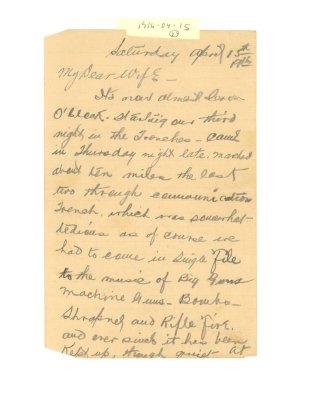 1916-04-15
Saturday April 15th
1916
My Dear Wife –
It's now almost Seven
O'Clock. Starting our third
night in the Trenches – came
in Thursday night late. marched
about ten miles the last
two through communication
Trench, which was somewhat
tedious as of course we
had to come in single file
to the music of Big Guns
Machine Guns – Bombs –
Shrapnel and Rifle Fire.
and ever since it has been
Kept up, though quiet at